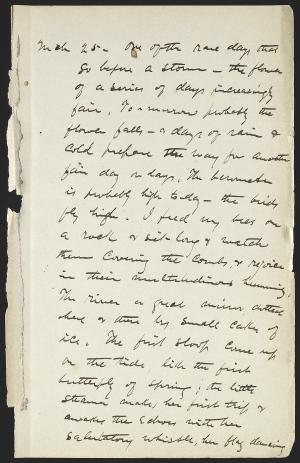 Mch 25 - One of the rare days that
go before a storm - the flower
of a series of days increasingly
fair. To-morrow probably the
flower falls - & days of rain &
cold prepare the way for another
fair day or days. The barometer
is probably high to-day - the birds
fly high. I feed my bees on
a rock & sit long & watch
them covering the combs, & rejoice
in their multitudinous humming.
The river a great mirror, dotted
here & there by small cakes of
ice. The first sloop comes up
on the tide, like the first
butterfly of spring; the little
steamer makes her first trip &
awakes the echoes with her
salutatory whistle, her flag dancing